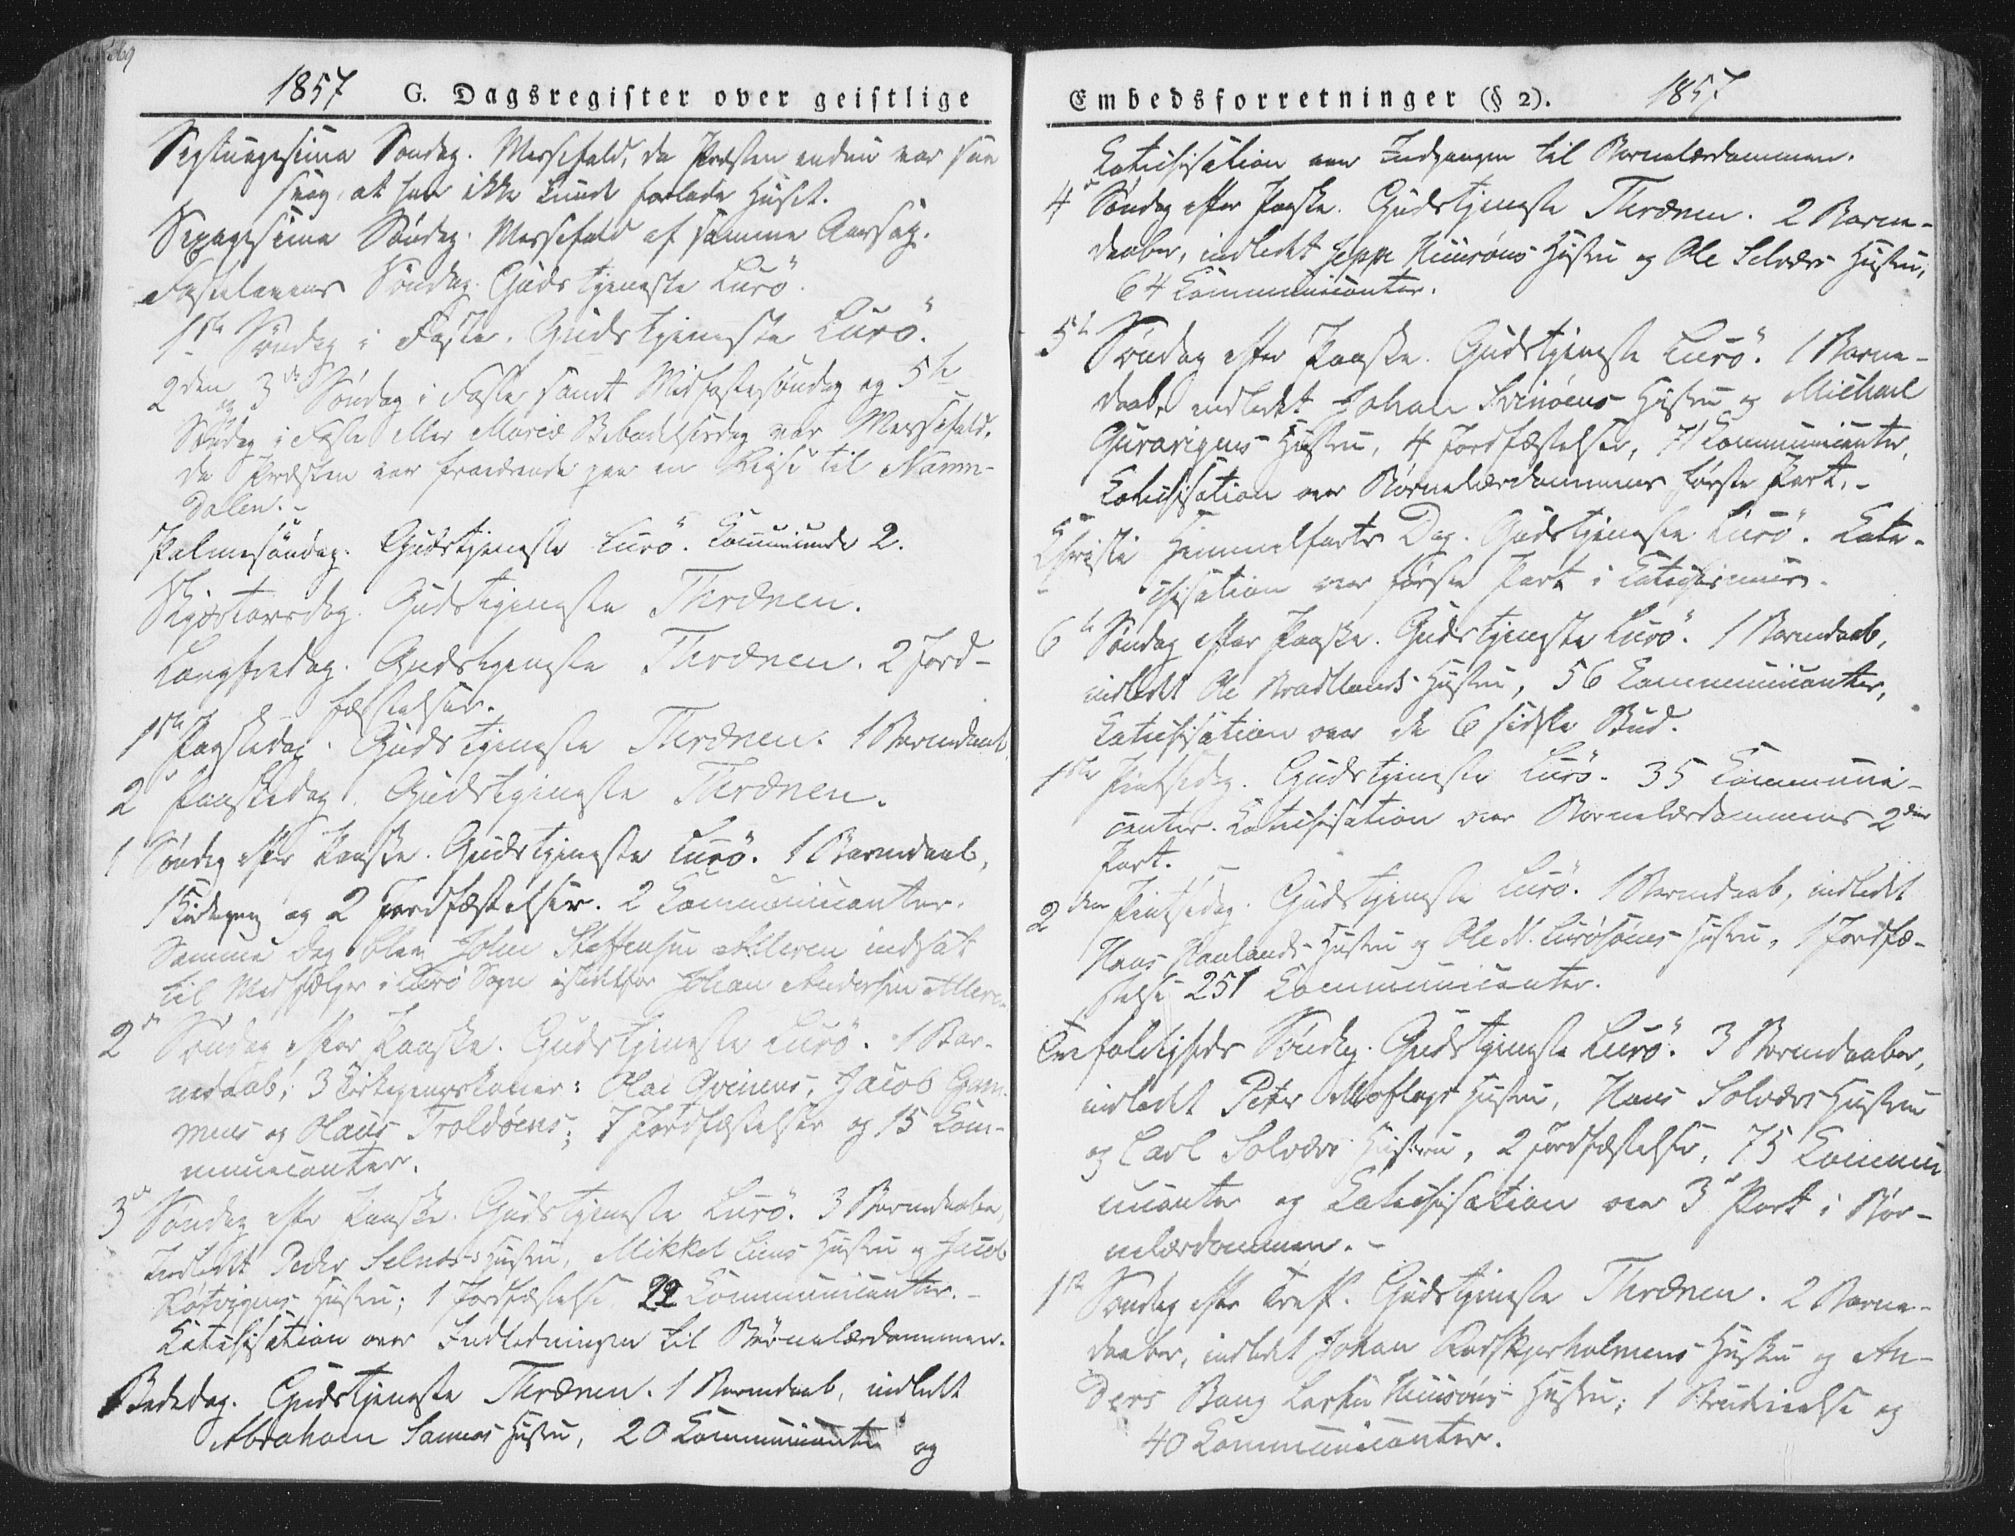 1857 G. Dagsregister over geistlige
Septuagesima Søndag. Messefald, da Præsten endnu var saa
svag, at han ikke kunde forlade Huset.
Sexagesima Søndag. Messefald af samme Aarsag.
Fastelavens Søndag. Gudstjeneste Lurö.
1ste Søndag i Faste. Gudstjeneste Lurö.
2den og 3de Søndag i Faste samt Midfastesøndag og 5te
Søndag i Faste eller Mariæ Bebudelsesdag var Messefald,
da Præsten var fraværende paa en Reise til Namm-
dalen.-
Palmesøndag. Gudstjeneste Lurö. Communicerede 2.
Skjærtorsdag. Gudstjeneste Thrænen.
Langfredag. Gudstjeneste Thrænen. 2 Jord-
fæstelser.
1ste Paaskedag. Gudstjeneste Thrænen. 1 Barnedaab.
2 Paaskedag. Gudstjeneste Thrænen.
1 Søndag efter Paaske. Gudstjeneste Lurö. 1 Barnedaab,
1 Kirkegang og 2 Jordfæstelser. 2 Communicanter.
Samme Dag blev John Steffensen Alleren indsat
til Medhjælper i Lurö Sogn istedetfor Johan Andersen Alleren.
2den Søndag efter Paaske. Gudstjeneste Lurö. 1 Bar-
nedaab, 3 Kirkegangskoner: Olai Qvinens, Jacob Gam-
mens og Olaus Troldøens; 7 Jordfæstelser og 15 Com-
municanter.
3de Søndag efter Paaske. Gudstjeneste Lurö. 3 Barnedaaber,
Indledet Peder Selnæs Hustru, Mikkel Hustru og Jacob
Røtvigens Hustru; 1 Jordfæstelse 22 Communicanter.-
Catechisation over Indledningen til Børnelærdommen.
Bededag. Gudstjeneste Thrænen. 1 Barnedaab, indledt
Abraham Sannas Hustru, 20 Communicanter og
Embedsforretninger (§ 2). 1857
Catechisation over Indgangen til Børnelærdommen.
4de Søndag efter Paaske. Gudstjeneste Thrænen. 2 Barne-
daaber, indledt Jeppe Huusøens Hustru og Ole Selvær Hustru,
64 Communicanter.
5te Søndag efter Paaske. Gudstjeneste Lurö. 1 Barne-
daab, indledet Johan Svinøens Hustru og Michael
Qvarøigens Hustru, 4 Jordfæstelser, 71 Communicanter,
Catechisation over Børnelærdommens første Part.-
Christi Himmelfarts Dag. Gudstjeneste Lurö. Cate-
chisation over første Part i Catechismen.
6te Søndag efter Paaske. Gudstjeneste Lurö. 1 Barnedaab,
indledt Ole Bradlands Hustru, 56 Communicanter,
Catechisation over de 6 sidste Bud.
1ste Pintsedag. Gudstjeneste Lurö. 35 Communi-
canter. Catechisation over Børnelærdommens 2den
Part.
2den Pintsedag. Gudstjeneste Lurö. 1 Barnedaab, indledt
Hans Haulands Hustru og Ole N. Lurösønes Hustru, 1 Jordfæ-
stelse 251 Communicanter.
Trefoldigheds Søndag. Gudstjeneste Lurö. 3 Barnedaaber,
indledt Peter Moflags Hustru, Hans Solvær Hustru
og Carl Solvær Hustru, 2 Jordfæstelser, 75 Commu
nicanter og Catechisation over 3de Part i Bør-
nelærdommen.-
1ste Søndag efter Tref. Gudstjeneste Thrænen. 2 Barne-
daaber, indledt Johan Rødskjærholmens Hustru og An-
ders Bang Larsen Huusøens Hustru; 1 Brudevielse og
40 Communicanter.